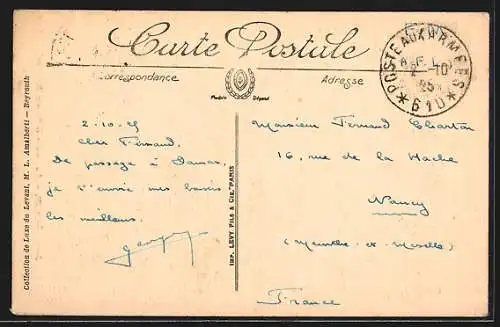 Carte Postale
Correspondance
Adresse
Modèle Déposé
POSTE AUX ARMÉES
2-10
25
* 610 *
2.10.25
cher Fernand.
De passage à Damas,
je t'envoie mes bons
les meilleurs.
Monsieur Fernand Charton
16, rue de la Hache
Nancy
(Meurthe-et-Moselle)
France
Collection de Luxe du Levant, M. L. Amalberti — Beyrouth
IMP. LEVY FILS & CIE, PARIS